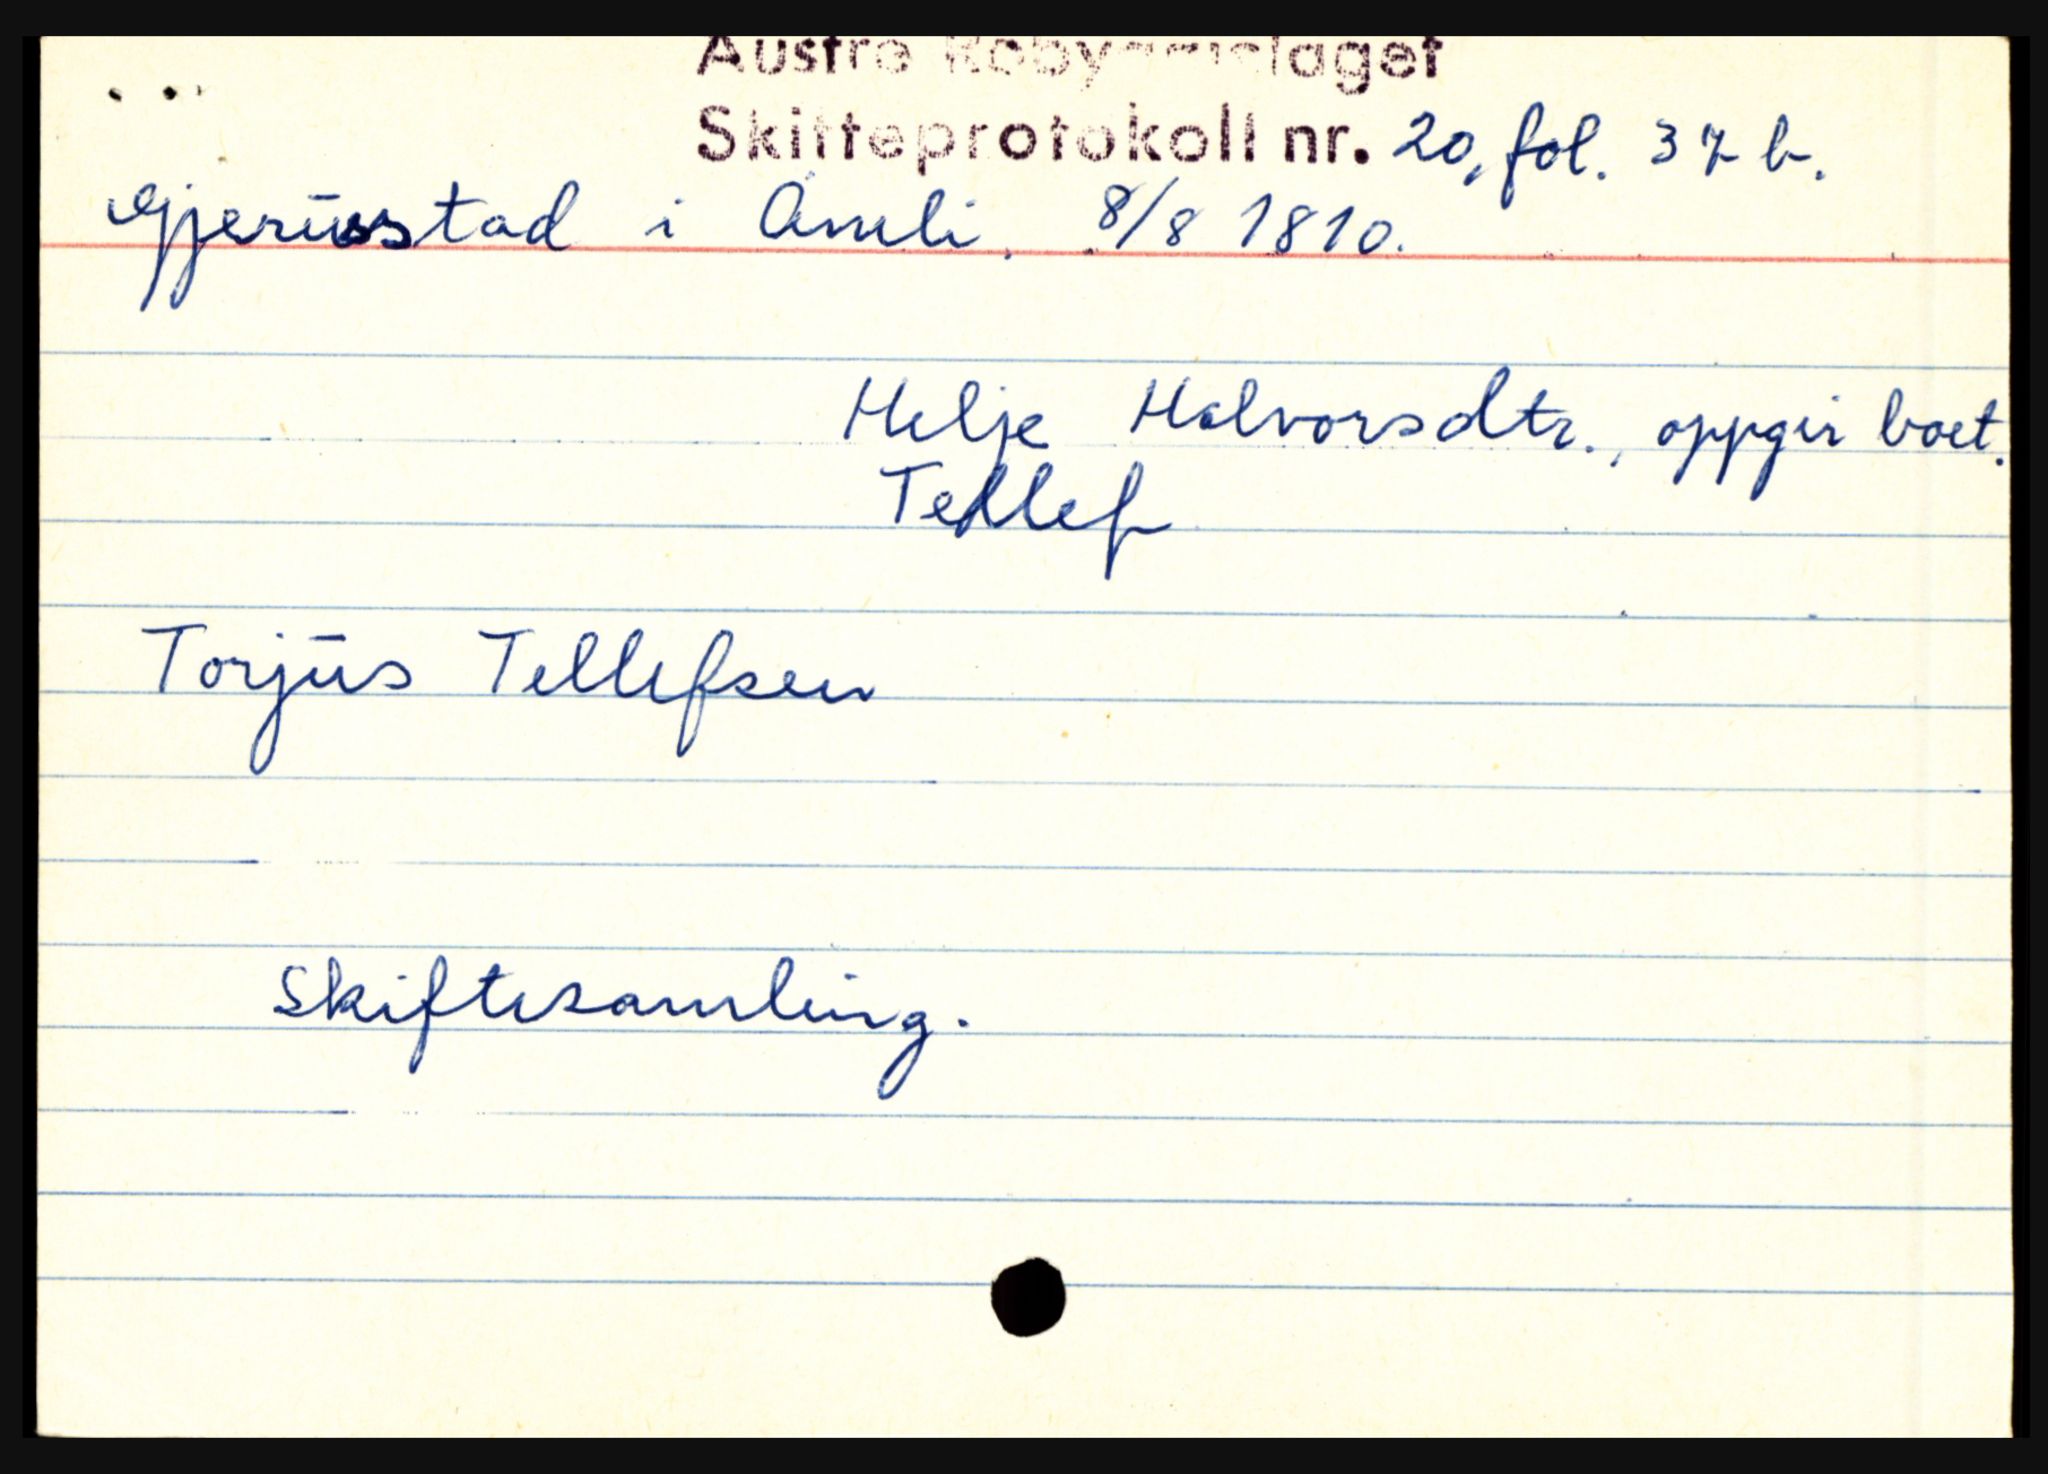 Austre Robyggjelaget
Skifteprotokoll nr. 20, fol. 37 b.
Gjerusstad i Åmli, 8/8 1810.
Helje Halvorsdtr., oppgir boet.
Tellef
Torjus Tellefsen
Skiftesamling.